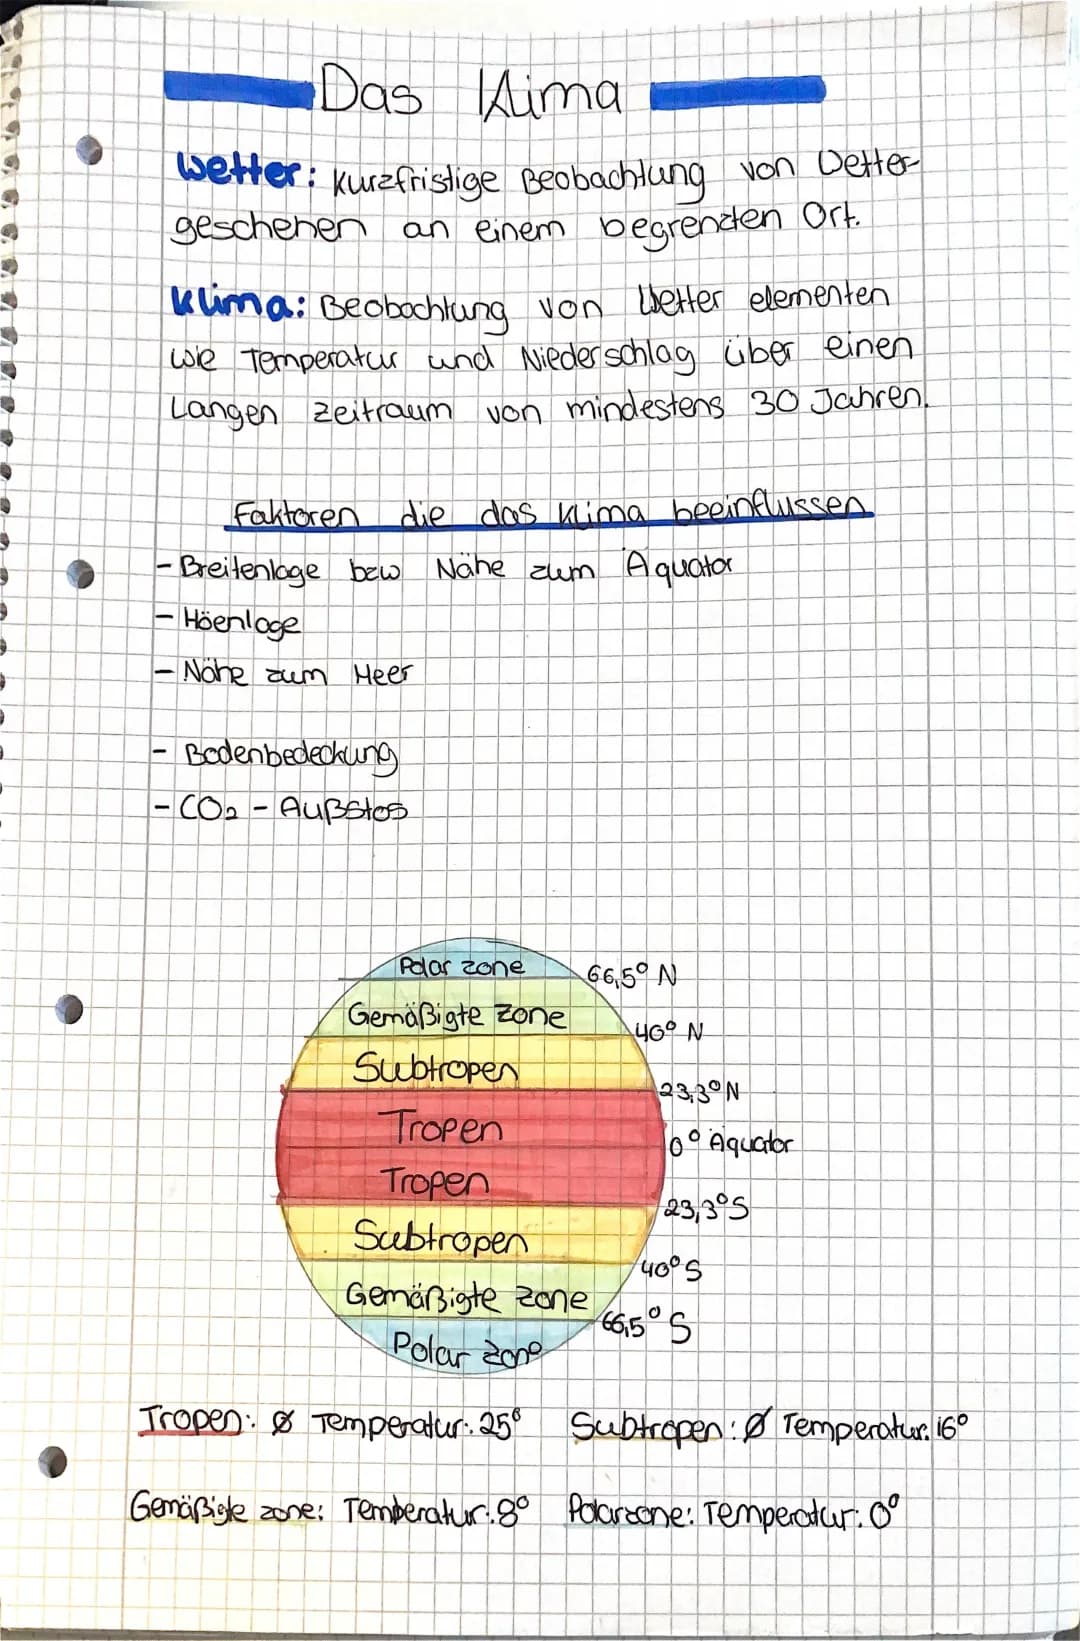 Das Klima
Wetter: Kurzfristige Beobachtung von Wetter-
geschehen an einem begrenzten Ort.
Klima: Beobachtung von Wetter elementen
wie Temperatur und Niederschlag über einen
Langen Zeitraum von mindestens 30 Jahren.
Faktoren die das Klima beeinflussen
- Breitenlage bzw Nähe zum Äquator
- Höenlage
- Nähe zum Meer
- Bodenbedeckung
- CO₂ - Außstos
Polar zone 66,5° N
Gemäßigte Zone 40° N
Subtropen 23,3° N
Tropen 0° Äquator
Tropen 23,3° S
Subtropen 40° S
Gemäßigte zone 66,5° S
Polar zone
Tropen: Ø Temperatur: 25° Subtropen: Ø Temperatur: 16°
Gemäßigte zone: Temperatur: 8° Polarzone: Temperatur: 0°